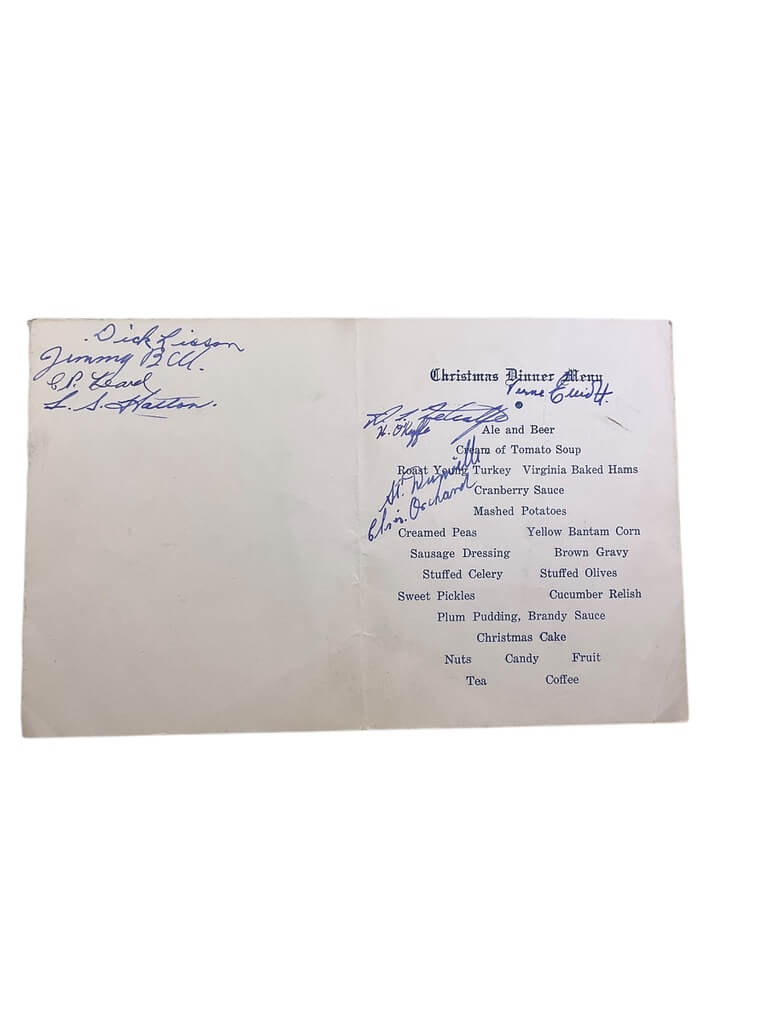 Dick Lisson
Jimmy B
C.P. Heard
L. S. Hatton.
Christmas Dinner Menu
Verne
H. O'Kyffe
Ale and Beer
Cream of Tomato Soup
Roast Young Turkey Virginia Baked Hams
Cranberry Sauce
St. Dumville
Chris. Orchard
Mashed Potatoes
Creamed Peas Yellow Bantam Corn
Sausage Dressing Brown Gravy
Stuffed Celery Stuffed Olives
Sweet Pickles Cucumber Relish
Plum Pudding, Brandy Sauce
Christmas Cake
Nuts Candy Fruit
Tea Coffee